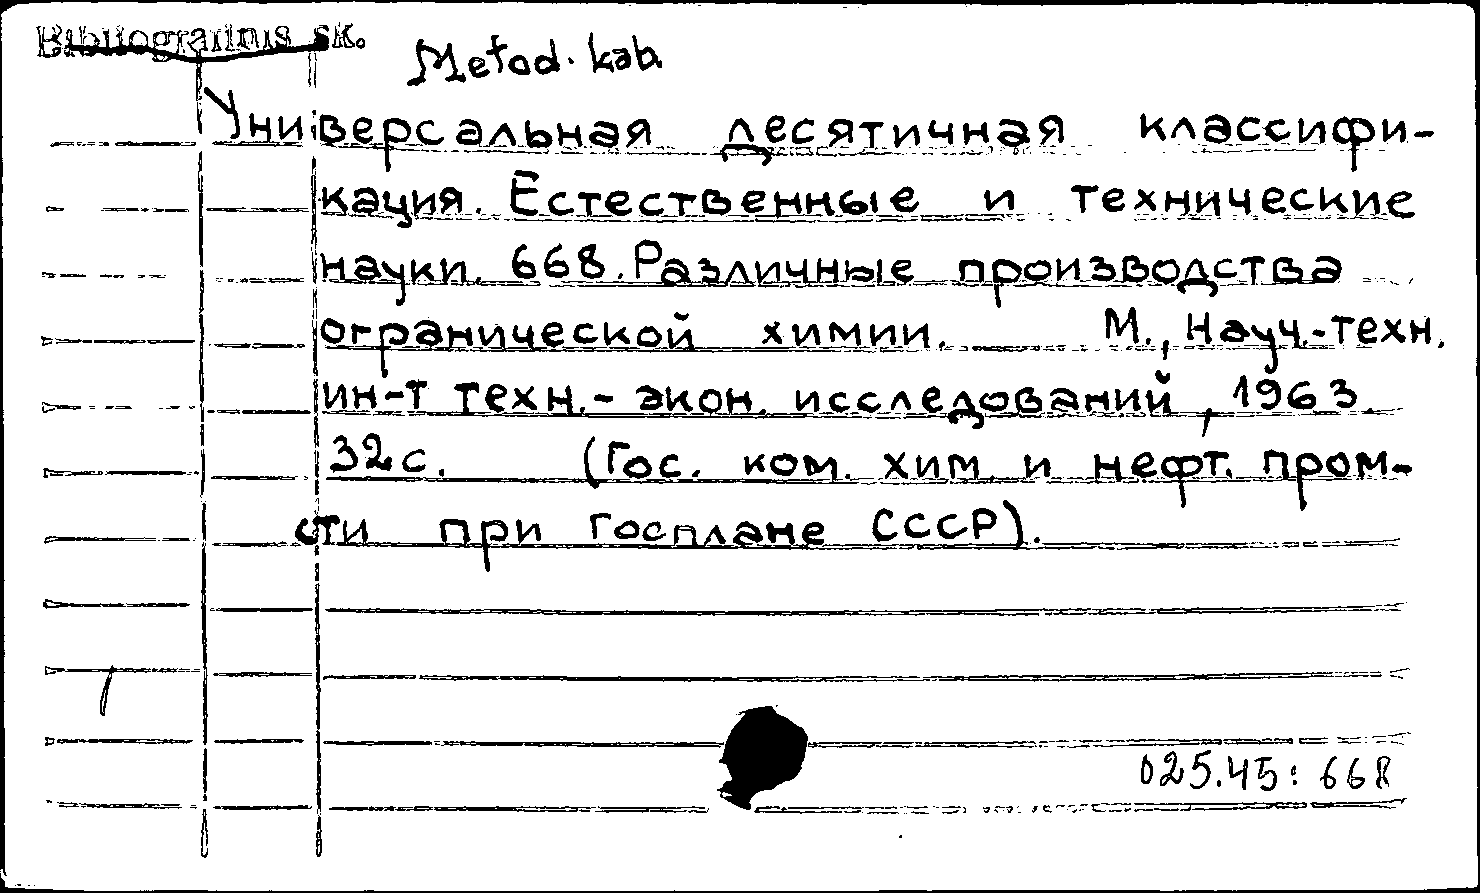 Bibliografinis sk.
Metod. kab.
Универсальная десятичная классифи-
кация. Естественные и технические
науки. 668. Различные производства
огранической химии. М., Науч.-техн.
ин-т техн.- экон. исследований, 1963.
32 с. (Гос. ком. хим. и нефт. пром-
сти при Госплане СССР).
025.45:668